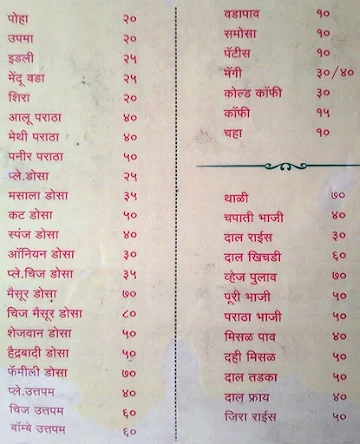 पोहा २०
उपमा २०
इडली २५
मेंदू वडा २५
शिरा २०
आलू पराठा ४०
मेथी पराठा ४०
पनीर पराठा ५०
प्ले.डोसा २५
मसाला डोसा ३५
कट डोसा ५०
स्पंज डोसा ४०
ऑनियन डोसा ३०
प्ले.चिज डोसा ३५
मैसूर डोसा ७०
चिज मैसूर डोसा ८०
शेजवान डोसा ५०
हैद्रबादी डोसा ५०
फॅमीली डोसा ७०
प्ले.उत्तपम ४०
चिज उत्तपम ६०
बॉम्बे उत्तपम ६०
वडापाव १०
समोसा १०
पॅटीस १०
मॅगी ३०/४०
कोल्ड कॉफी ३०
कॉफी १५
चहा १०
थाळी ७०
चपाती भाजी ४०
दाल राईस ३०
दाल खिचडी ६०
व्हेज पुलाव ७०
पूरी भाजी ५०
पराठा भाजी ५०
मिसळ पाव ४०
दही मिसळ ५०
दाल तडका ५०
दाल फ्राय ४०
जिरा राईस ५०